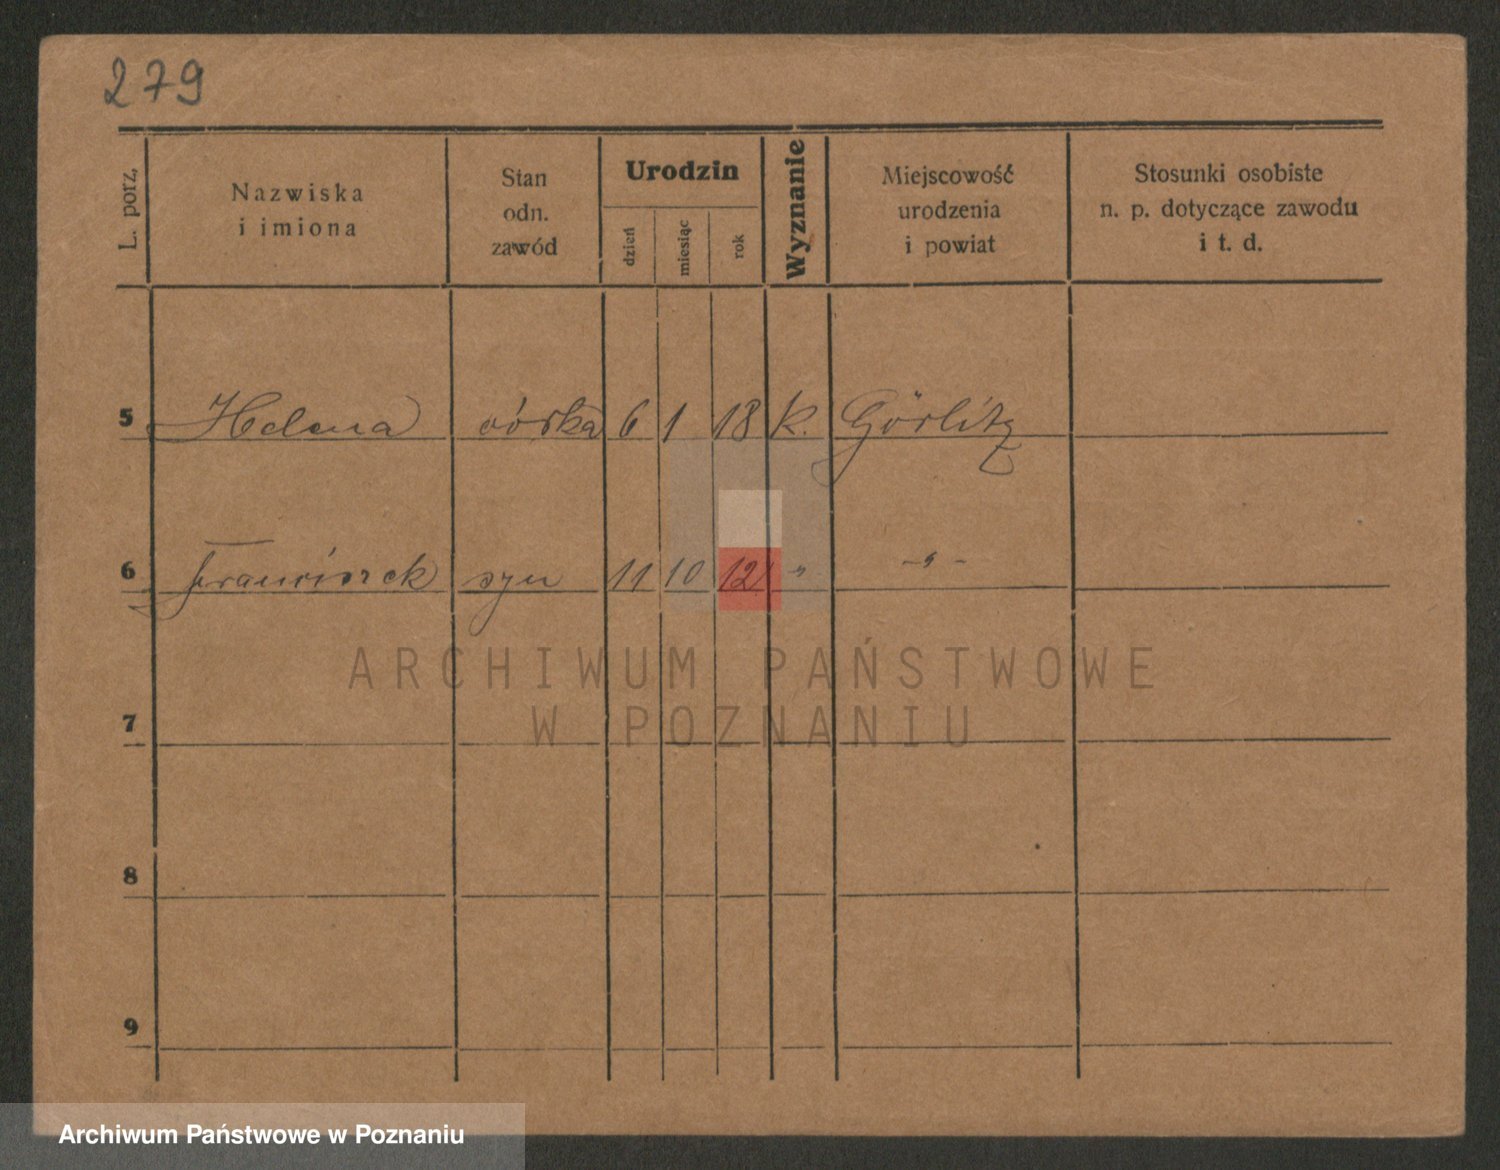 279
L. porz.
Nazwiska
i imiona
Stan
odn.
zawód
Urodzin
dzień
miesiąc
rok
Wyznanie
Miejscowość
urodzenia
i powiat
Stosunki osobiste
n. p. dotyczące zawodu
i t. d.
5 Helena córka 6 1 18 k. Görlitz
6 Franciszek syn 11 10 12 " -"-
ARCHIWUM PAŃSTWOWE
W POZNANIU
7
8
9
Archiwum Państwowe w Poznaniu